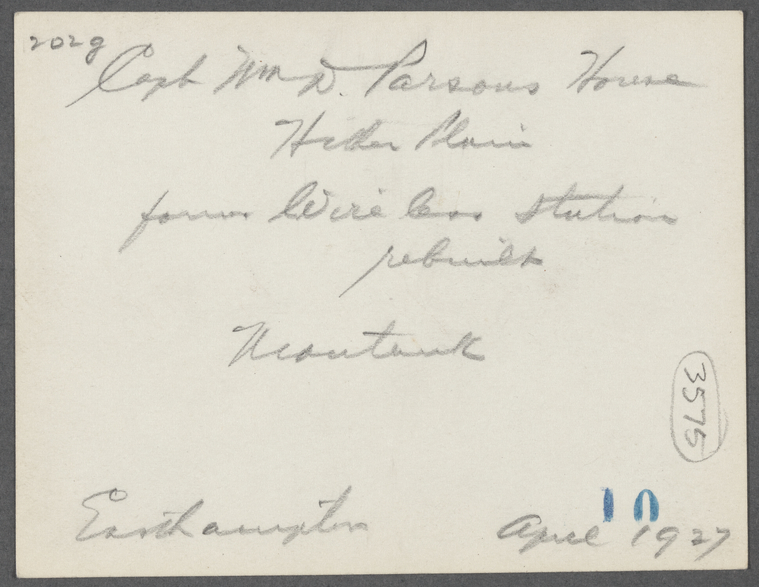 202g
Capt Wm D. Parsons House
Hither Plain
former Wireless Station
rebuilt
Montauk
3575
Easthampton
10
April 1927